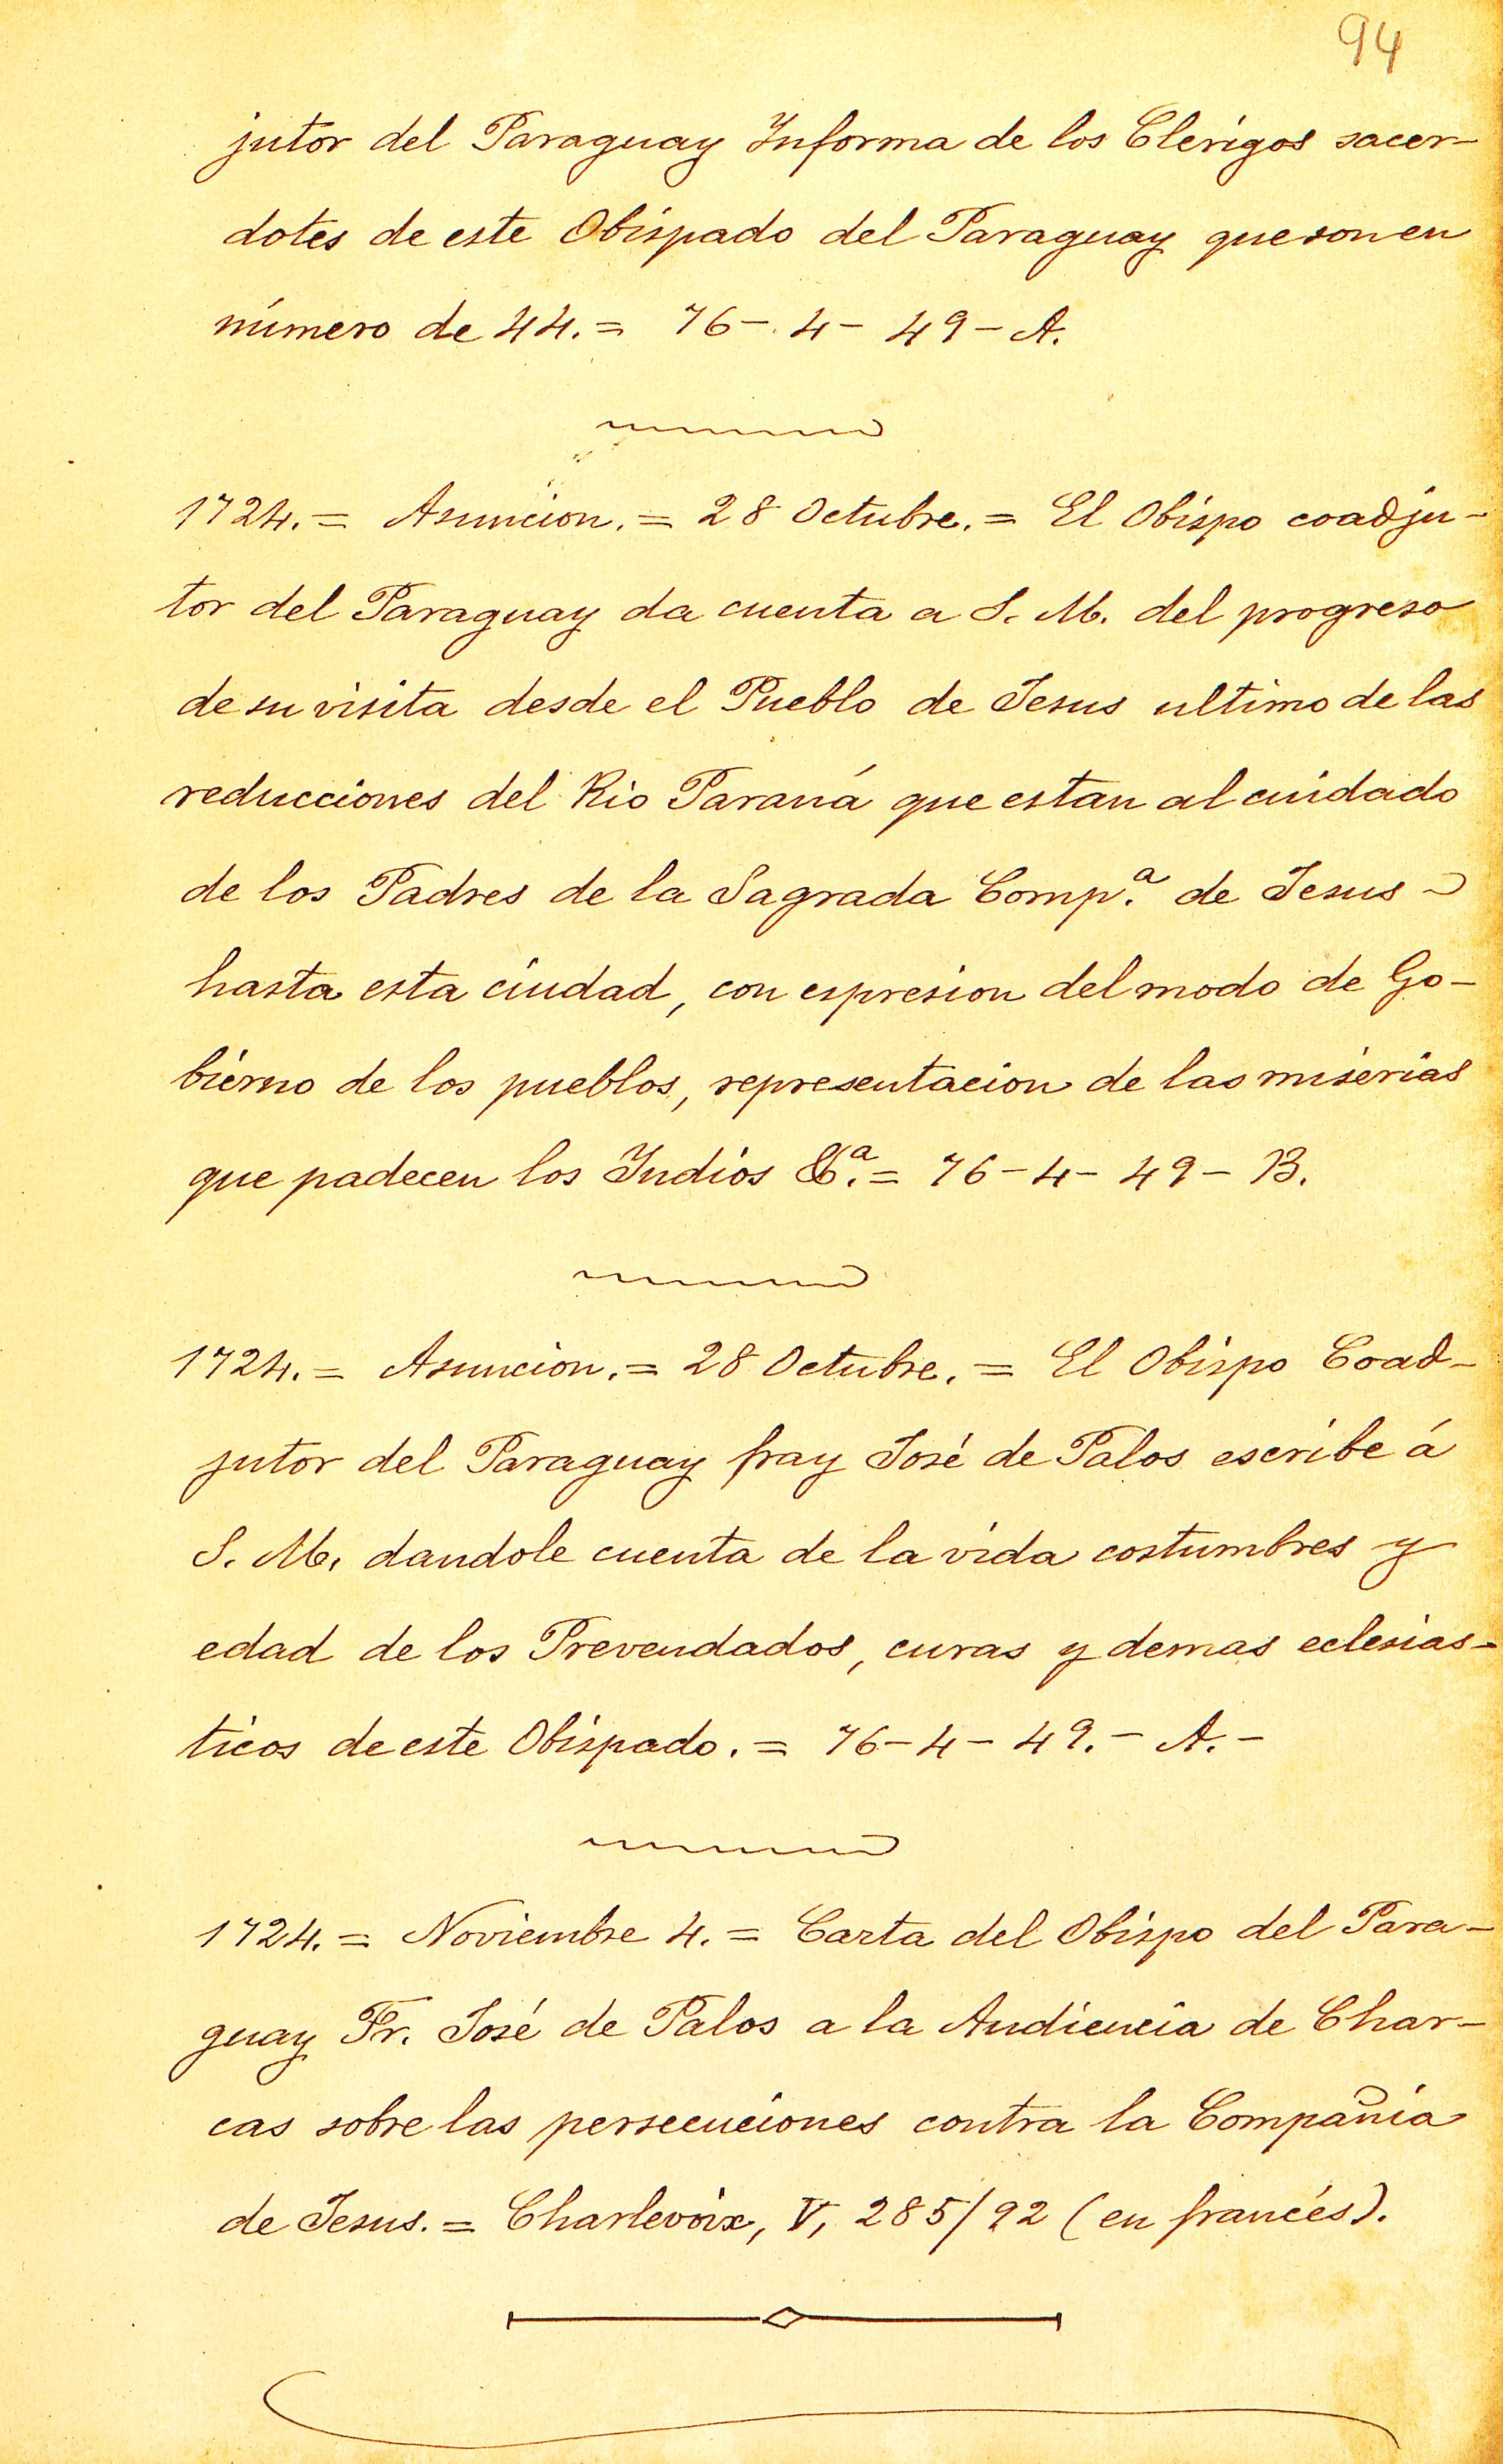 94
jutor del Paraguay Informa de los Clérigos sacer-
dotes de este Obispado del Paraguay que son en
número de 44. = 76 - 4 - 49 - A.
1724. = Asuncion. = 28 Octubre. = El Obispo coadju-
tor del Paraguay da cuenta a S. M. del progreso
de su visita desde el Pueblo de Jesus ultimo de las
reducciones del Rio Paraná que estan al cuidado
de los Padres de la Sagrada Comp.ª de Jesus -
hasta esta ciudad, con espresion del modo de Go-
bierno de los pueblos, representacion de las miserias
que padecen los Indios &.ª = 76 - 4 - 49 - B.
1724. = Asuncion. = 28 Octubre. = El Obispo Coad-
jutor del Paraguay fray José de Palos escribe á
S. M. dandole cuenta de la vida costumbres y
edad de los Prevendados, curas y demas eclesias-
ticos de este Obispado. = 76 - 4 - 49. - A. -
1724. = Noviembre 4. = Carta del Obispo del Para-
guay Fr. José de Palos a la Audiencia de Char-
cas sobre las persecuciones contra la Compañia
de Jesus. = Charlevoix, V, 285/92 (en francés).